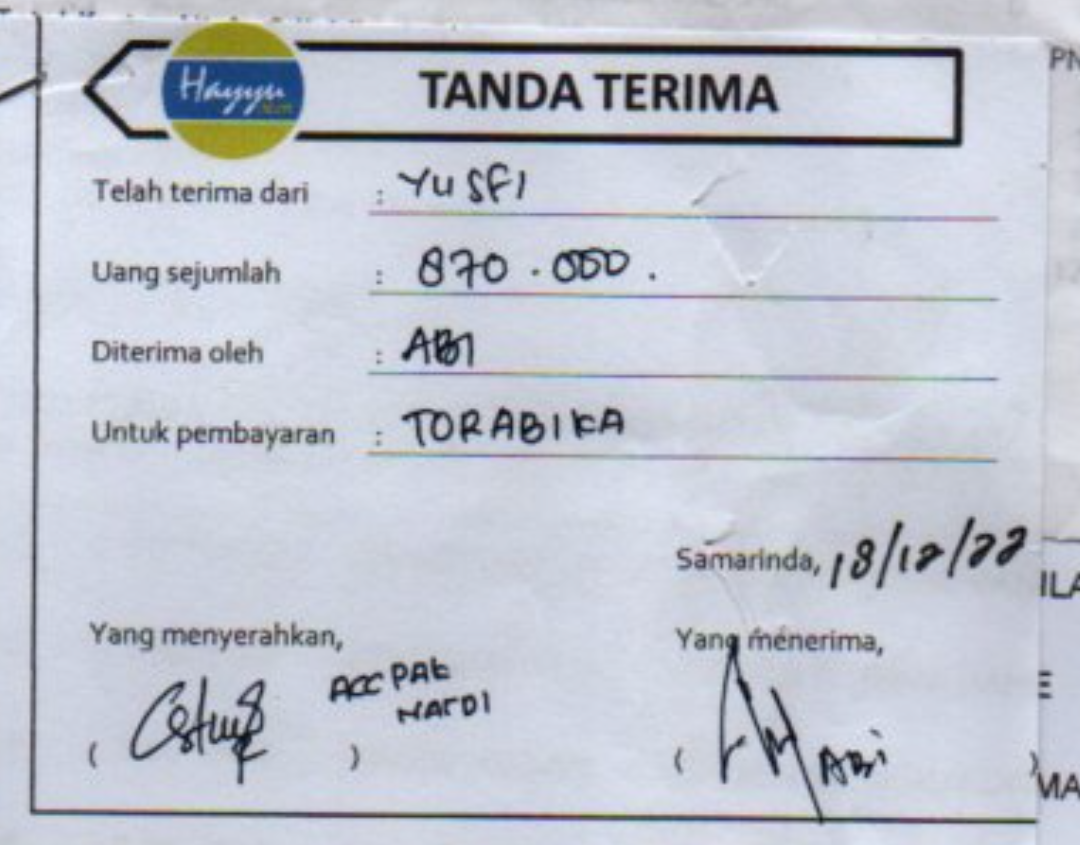 Hayyu
TANDA TERIMA
Telah terima dari : YUSFI
Uang sejumlah : 870.000.
Diterima oleh : ABI
Untuk pembayaran : TORABIKA
Samarinda, 18/12/22
Yang menyerahkan,
Yang menerima,
ACC PAK
NARDI
( )
( ABI )
PN
ILA
E
MA